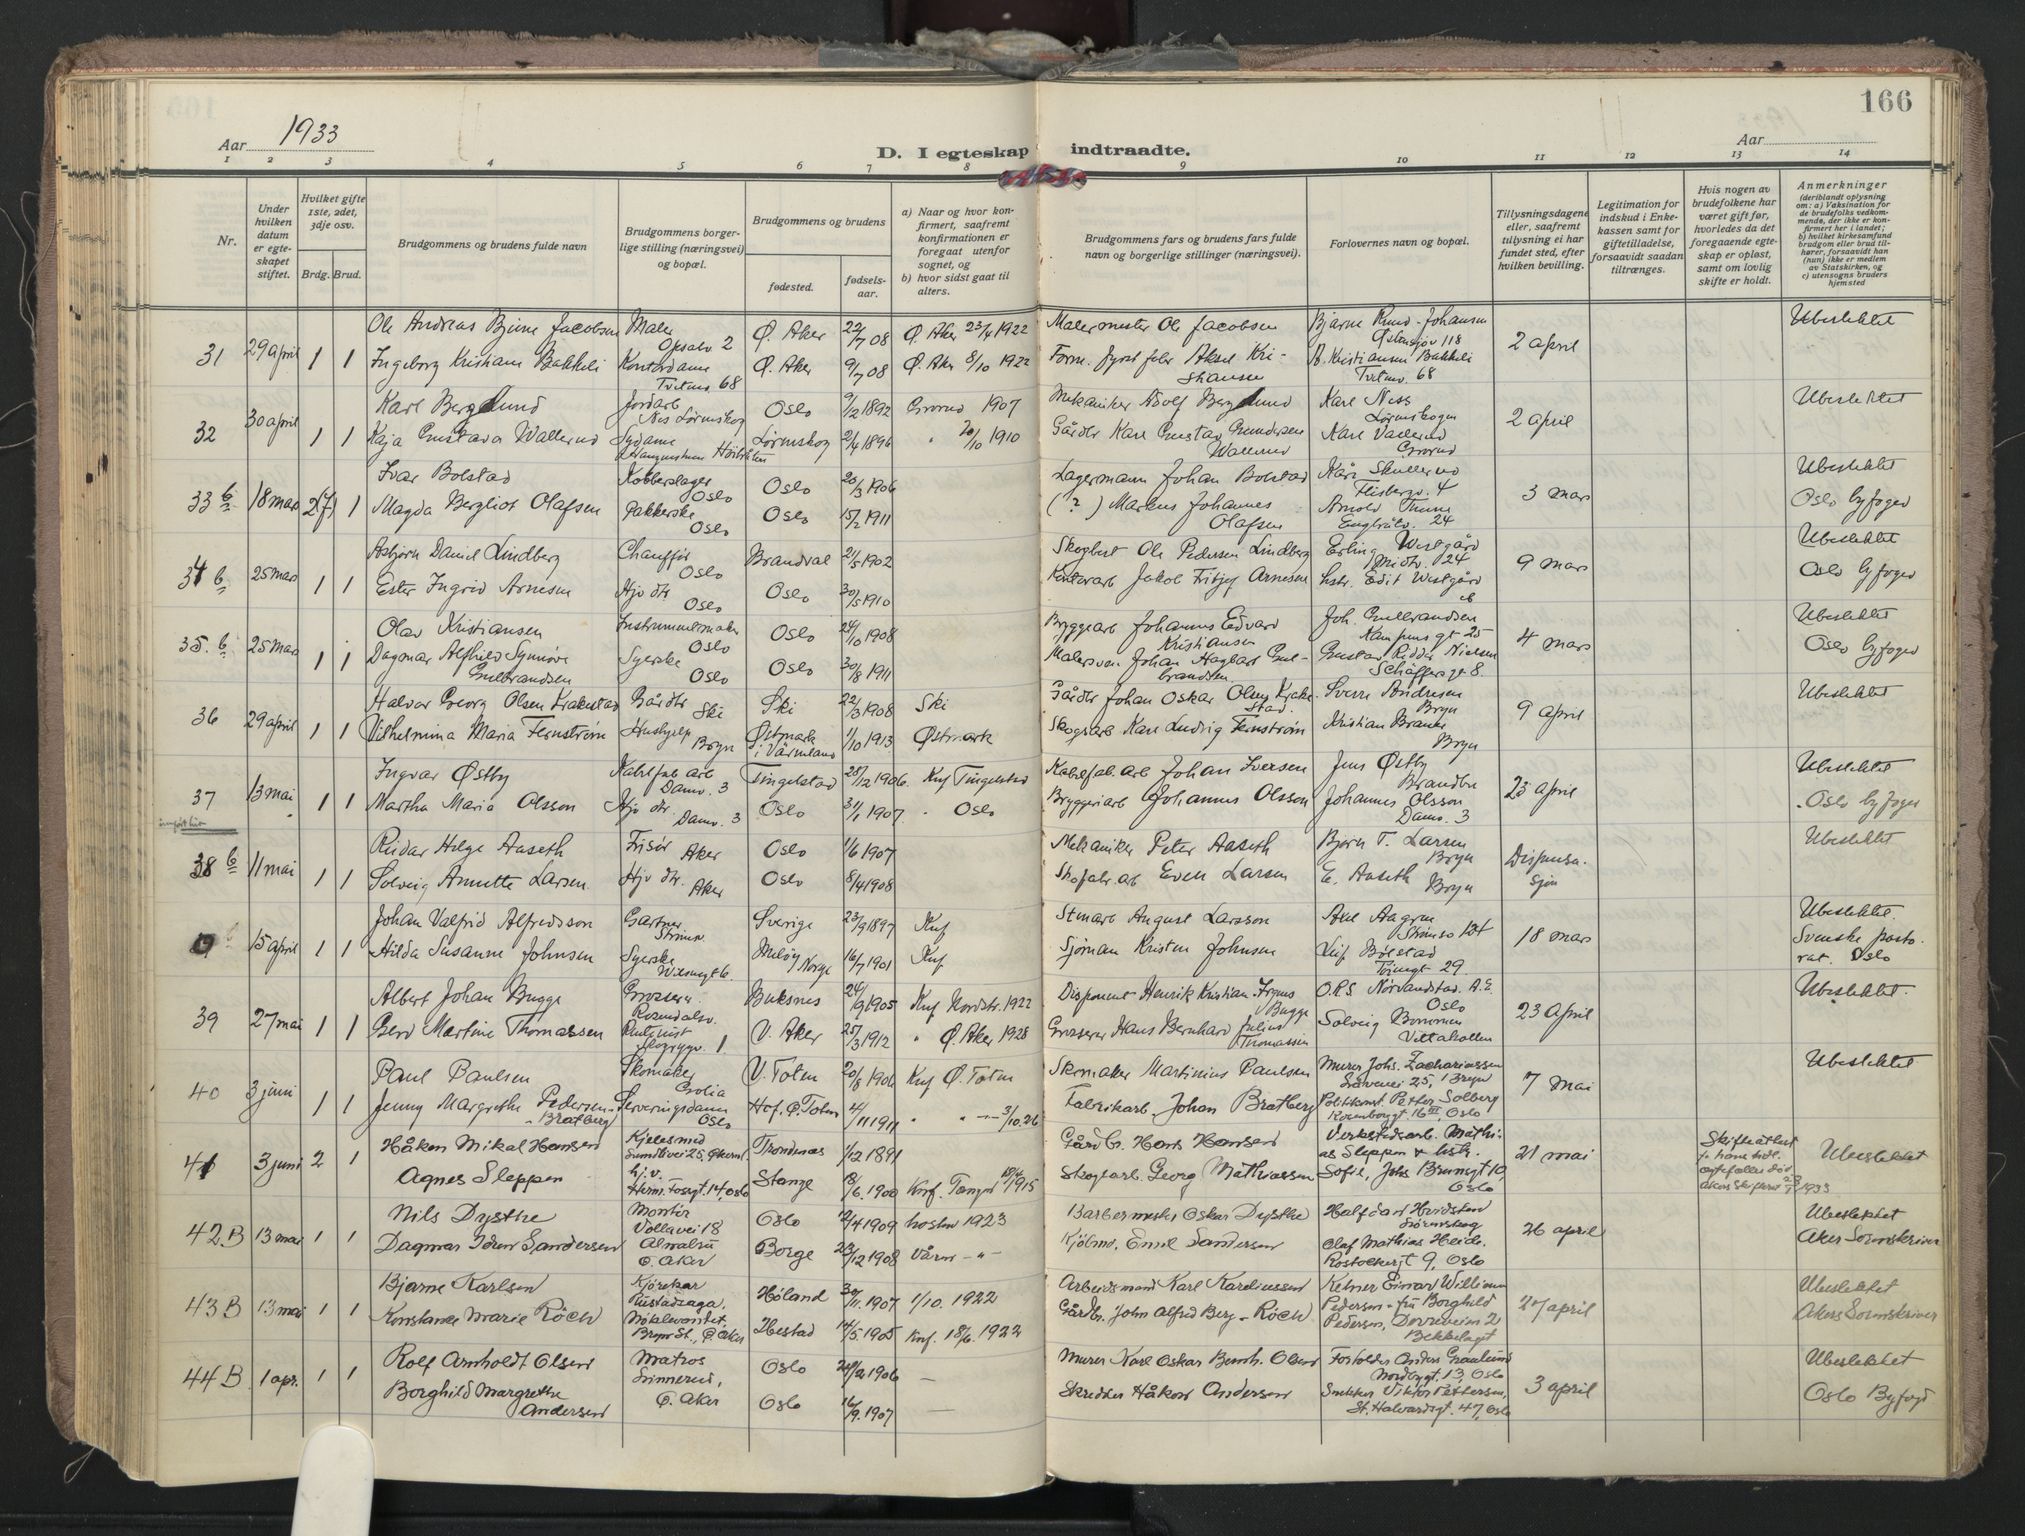 166
Aar 1933
Aar
D. I egteskap indtraadte.
1 2 3 4 5 6 7 8 9 10 11 12 13 14
Nr.
Under hvilken datum er egteskapet stiftet.
Hvilket gifte 1ste, 2det, 3dje osv.
Brdg. Brud.
Brudgommens og brudens fulde navn
Brudgommens borgerlige stilling (næringsvei) og bopæl.
Brudgommens og brudens
fødested.
fødsels-aar.
a) Naar og hvor konfirmert, saafremt konfirmationen er foregaat utenfor sognet, og
b) hvor sidst gaat til alters.
Brudgommens fars og brudens fars fulde navn og borgerlige stillinger (næringsvei).
Forlovernes navn og bopæl.
Tillysningsdagene eller, saafremt tillysning ei har fundet sted, efter hvilken bevilling.
Legitimation for indskud i Enkekassen samt for giftetilladelse, forsaavidt saadan tiltrænges.
Hvis nogen av brudefolkene har været gift før, hvorledes da det foregaaende egteskap er opløst, samt om lovlig skifte er holdt.
Anmerkninger (deriblandt oplysning om: a) Vaksination for de brudefolks vedkommende, der ikke er konfirmert her i landet; b) hvilket kirkesamfund brudgom eller brud tilhører, forsaavidt han (hun) ikke er medlem av Statskirken, og c) utensogns bruders hjemsted
31 29 april 1 1 Ole Andreas Bjune Jacobsen Maler Opsalv 2 Ø. Aker 22/7 08 Ø. Aker 23/4 1922 Malermester Ole Jacobsen Bjarne Rund-Johansen Østensjøv 118 2 april Ubeslektet
Ingeborg Kristiansen Bakkeli Kontordame Tvetenv. 68 Ø. Aker 9/7 08 Ø. Aker 8/10 1922 Form. Aksel Kristiansen A. Kristiansen Bakkeli Tvetenv. 68
32 30 april 1 1 Karl Berglund Jordarb Nes Lørenskog Oslo 9/2 1892 Grorud 1907 Mekaniker Adolf Berglund Karl Ness Lørenskogen 2 april Ubeslektet
Kaja Gustava Wallerud Sydame Høibråten Lørenskog 2/4 1896 " 20/10 1910 Gårdbr Karl Gustav Gundersen Wallerud Karl Vallerud Grorud
33 b 18 mars 2(?) 1 Ivar Bolstad Kobberslager Oslo Oslo 20/3 1906 Lagermann Johan Bolstad Kåre Skullerud Flisbergv. 4 3 mars Ubeslektet
Magda Bergliot Olafsen Pakkerske Oslo Oslo 15/2 1911 (?) Markus Johannes Olafsen Arnold Thune Engbråtv. 24 Oslo byfoged
34 b 25 mars 1 1 Asbjørn Daniel Lindberg Chauffør Oslo Brandval 21/5 1902 Skogbest Ole Pedersen Lindberg Erling Westgård 24 9 mars Ubeslektet
Ester Ingrid Arnesen Hjv dtr Oslo Oslo 30/5 1910 Kontorarb Jakob Fritjof Arnesen hstr. Edit Westgård Oslo byfoged
35. b 25 mars 1 1 Olav Kristiansen Instrumentmaker Oslo Oslo 24/10 1908 Byggearb Johannes Edvard Kristiansen Joh. Gulbrandsen Kampensgt 25 4 mars Ubeslektet
Dagmar Alfhild Synnøve Gulbrandsen Syerske Oslo Oslo 30/8 1911 Malersven. Johan Hagbart Gulbrandsen Gustav Ridder Nielsen Schäffersgt 8. Oslo byfoged
36 29 april 1 1 Halvar Georg Olsen Krakestad Gårdbr Ski Ski 22/3 1908 Ski Gårdbr Johan Oskar Olsen Krakestad. Sverre Andresen Bryn 9 april Ubeslektet
Vilhelmina Maria Fernstrøm Hushjelp Bryn Østmark i Värmland 1/10 1913 Østmark Skogsarb Karl Ludvig Fernstrøm Kristian Branes Bryn
37 13 mai 1 1 Ingvar Østby Kabelfab arb Damv. 3 Tingelstad 28/12 1906. Knf Tingelstad Kabelfab. arb Johan Iversen Jens Østby Brandbu 23 april Ubeslektet
Martha Maria Olsson Hjv dtr. Damv. 3 Oslo 31/1 1907 " Oslo Bryggeriarb Johannes Olsson Johannes Olsson Damv. 3 Oslo byfoged
38 b 11 mai 1 1 Reidar Helge Aaseth Frisør Aker Oslo 1/6 1907 Mekaniker Peter Aaseth Bjørn T. Larsen Bryn Dispensasjon Ubeslektet
Solveig Annette Larsen. Hjv dtr. Aker Oslo 8/4 1908 Skofabr. arb Even Larsen E. Aaseth Bryn
15 april 1 1 Johan Valfrid Alfredsson Gartner Sverige 23/9 1897 Knf Stenarb August Larsson Axel Aagren 18 mars Ubeslektet.
Hilda Susanne Johnsen Syerske Meløy Norge 16/7 1901 Knf Sjømann Kristen Johnsen Leif Bolstad Tøiengt 29 Svenske pastorat. Oslo
39 27 mai 1 1 Albert Johan Bugge Grosserer Rosendalsv. Buksnes 24/9 1905 Knf Nordstr. 1922 Disponent Henrik Kristian Irgens Bugge O.P.S. Nørvandstad. A.E. Oslo 23 April Ubeslektet.
Gerd Martine Thomassen Kontorist Skogryggv. 1 V. Aker 25/3 1912 " Ø. Aker 1928 Grosserer Hans Bernhard Julius Thomassen Solveig Bommen Vettakollen
40 3 juni 1 1 Paul Paulsen Skomaker Grolia V. Toten 20/8 1906 Knf Ø. Toten Skomaker Martinius Paulsen Murer Johs. Zachariassen Svevevei 25, Bryn 7 mai Ubeslektet
Jenny Margrethe Pedersen-Bratberg Serveringsdame Oslo Hof. Ø. Toten 4/11 1911 " " - 3/10.26 Fabrikarb. Johan Bratberg Politikonst. Petter Solberg Rosenborggt 16 III Oslo
41 3 juni 2 1 Håkon Mikal Hansen Kjelesmed Trondenes 1/12 1891 Gårdbr. Hans Hansen Verkstedsarb. Mathias Sleppen & hstr. 21 mai Skifteattest Ubeslektet
Agnes Sleppen hj.v. Herm. Fossgt. 14, Oslo Stange 18/6. 1900 Konf. Tangen 1915 Skogsarb. Georg Mathiassen Sofie, Johs Brunsgt 10, Oslo 1933
42 B 13 mai 1 1 Nils Dysthe Montør Vollavei 18 Oslo 12/4 1909 høsten 1923 Barbermester Oskar Dysthe Halfdan Hvidsten Lørenskog 26 april Ubeslektet
Dagmar Idun Sandersen Almalsu Ø. Aker Borge 23/12 1908 Våren - " - Kjølmd. Emil Sandersen Olaf Mathias Heide. Rostockergt 9, Oslo Aker Sorenskriver
43 B 13 mai 1 1 Bjarne Karlsen Kjørekar Rustadsaga. Høland 30/11. 1907 1/10. 1922 Arbeidsmand Karl Kareliussen Kelner Einar William Pedersen - fru Borghild Pedersen, Dovreveien 2 Bekkelaget 27 april Ubeslektet
Konstanse Marie Röch Nøklevannet, Bryn St., Ø. Aker Ibestad 14/5. 1905 Konf. 18/6. 1922 Gårdbr. John Alfred Berg-Röch Akers Sorenskriver
44 B 1 apr. 1 1 Rolf Arnholdt Olsen Matros Ø. Aker Oslo 20/2 1906 — Murer Karl Oskar Bernh. Olsen Forholder Anders Graulund Nordbygt. 13, Oslo 3 april Ubeslektet
Borghild Margrethe Andersen Oslo 16/9. 1907 — Skredder Håkon Andersen Snekker Viktor Pettersen, St. Halvardsgt. 47, Oslo Oslo Byfogd